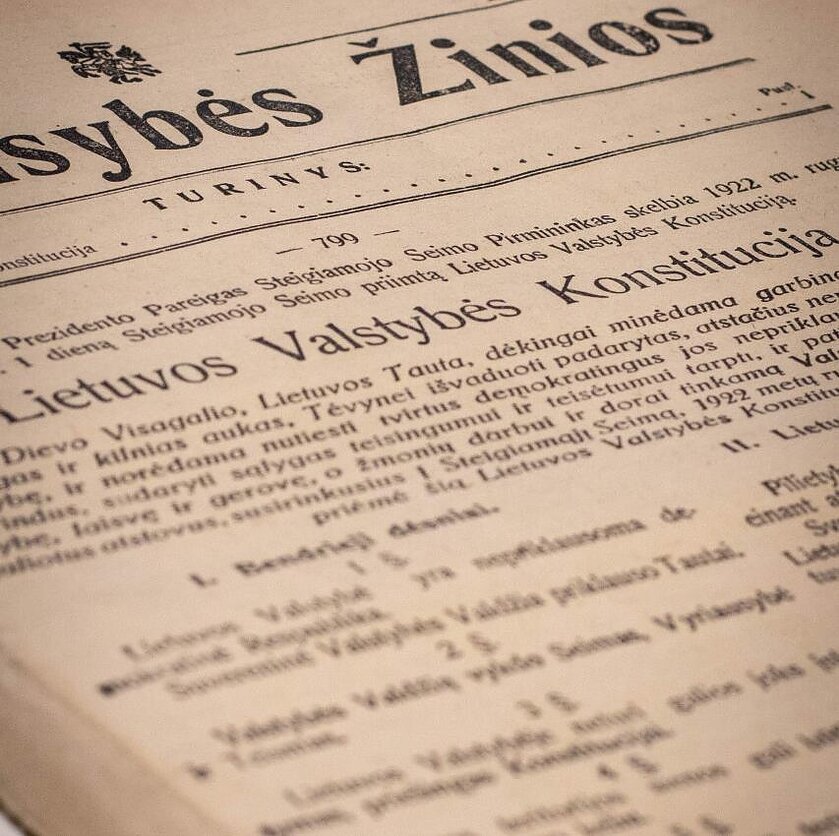 sybės Žinios
TURINYS:
Pusl.
onstitucija . . . . . . . . . . . . . . . . . . . . . . . . 1
— 799 —
Prezidento Pareigas Steigiamojo Seimo Pirmininkas skelbia 1922 m. rug
1 dieną Steigiamojo Seimo priimtą Lietuvos Valstybės Konstituciją.
Lietuvos Valstybės Konstitucija
Dievo Visagalio, Lietuvos Tauta, dėkingai minėdama garbin
gas ir kilnias aukas, Tėvynei išvaduoti padarytas, atstačius ne
ybę, ir norėdama nutiesti tvirtus demokratingus jos nepriklau
indus, sudaryti sąlygas teisingumui ir teisėtumui tarpti, ir pa
ybę, laisvę ir gerovę, o žmonių darbui ir dorai tinkamą Val
aliotus atstovus, susirinkusius į Steigiamąjį Seimą, 1922 metų
priėmė šią Lietuvos Valstybės Konstit
I. Bendrieji dėsniai.
1 §
Lietuvos Valstybė yra nepriklausoma de-
mokratinė Respublika.
Suvereninė Valstybės Valdžia priklauso Tautai.
2 §
Valstybės Valdžią vykdo Seimas, Vyriausybė
ir Teismas.
3 §
Lietuvos Valstybėje neturi galios joks
priešingas Konstitucijai.
4 §
II. Lietu
Piliety
einant